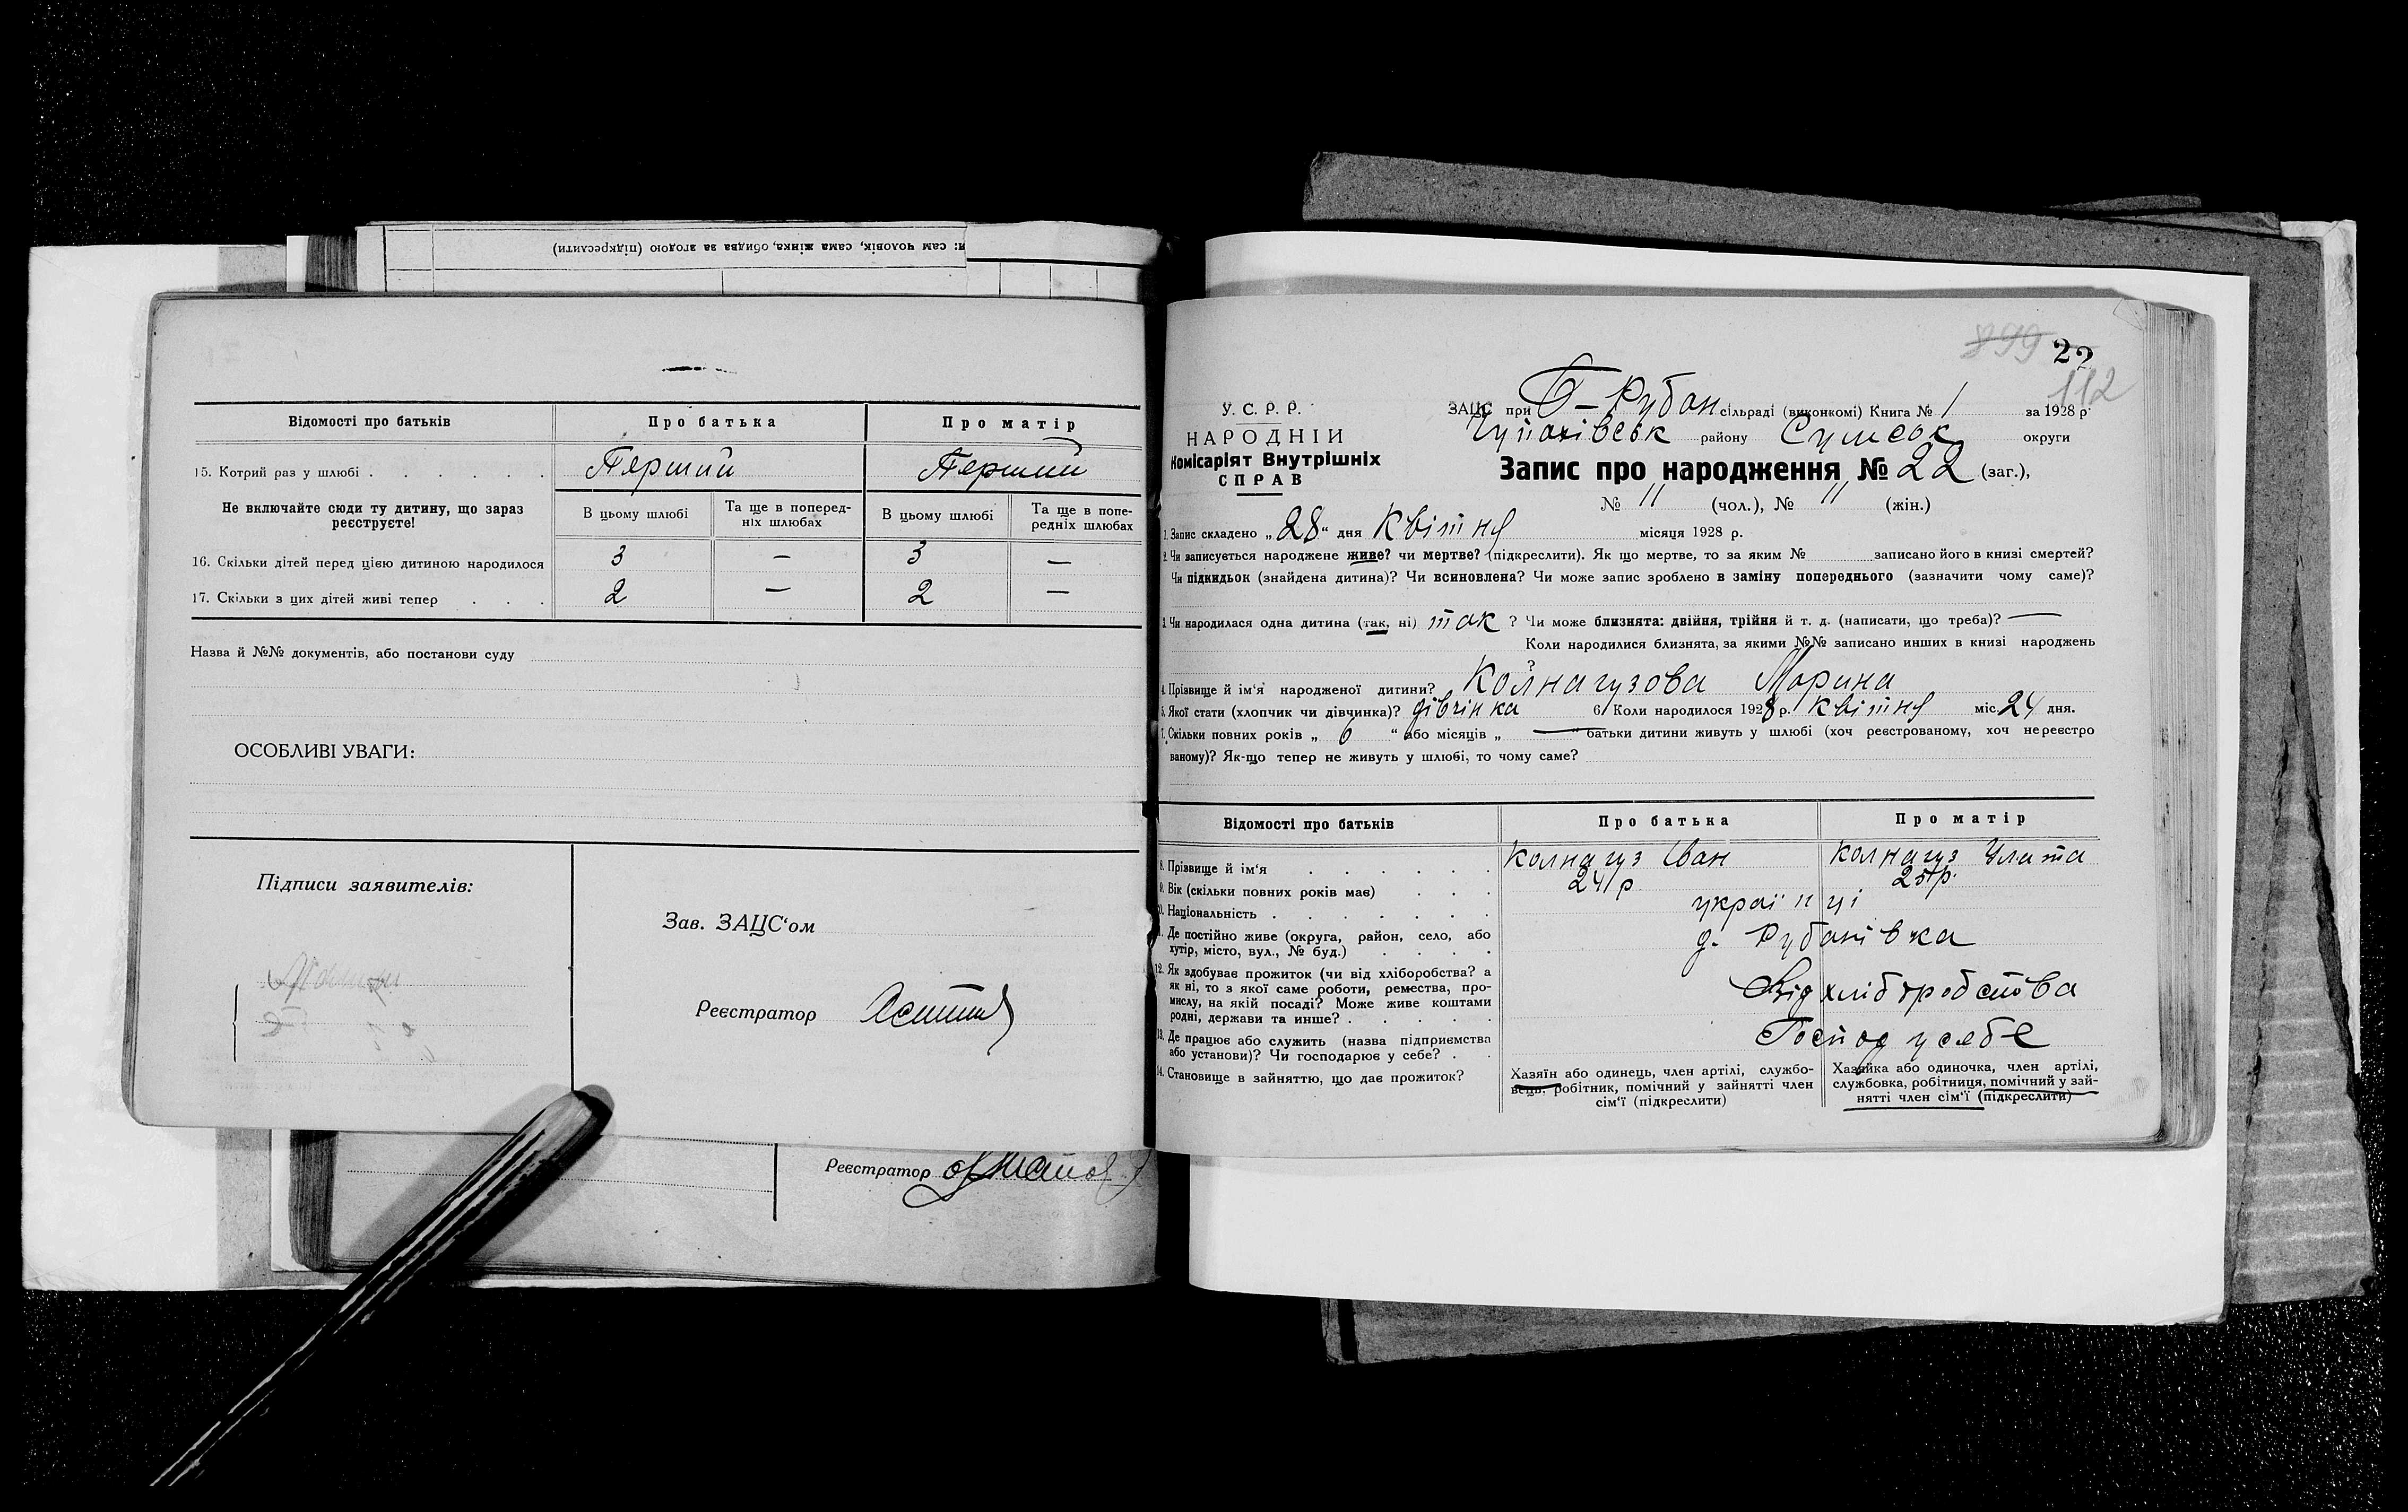 и: сам чоловік, сама жінка, обидва за згодою (підкреслити)
Відомості про батьків Про батька Про матір
15. Котрий раз у шлюбі . . . . . . Перший Перший
Не включайте сюди ту дитину, що зараз реєструєте!
В цьому шлюбі Та ще в попередніх шлюбах В цьому шлюбі Та ще в попередніх шлюбах
16. Скільки дітей перед цією дитиною народилося 3 — 3 —
17. Скільки з цих дітей живі тепер . . . 2 — 2 —
Назва й №№ документів, або постанови суду
ОСОБЛИВІ УВАГИ:
Підписи заявителів:
Зав. ЗАЦС‘ом
Реєстратор
Реєстратор
899 22
112
У. С. Р. Р.
НАРОДНІЙ
Комісаріят Внутрішніх
СПРАВ
ЗАЦС при Б-Рубан сільраді (виконкомі) Книга № 1 за 1928 р.
Чупахівськ району Сумськ округи
Запис про народження № 22 (заг.),
№ 11 (чол.), № 11 (жін.)
1. Запис складено „28“ дня Квітня місяця 1928 р.
2. Чи записується народжене живе? чи мертве? (підкреслити). Як що мертве, то за яким № записано його в книзі смертей?
Чи підкидьок (знайдена дитина)? Чи всиновлена? Чи може запис зроблено в заміну попереднього (зазначити чому саме)?
3. Чи народилася одна дитина (так, ні) так ? Чи може близнята: двійня, трійня й т. д. (написати, що треба)? —
Коли народилися близнята, за якими №№ записано инших в книзі народжень
?
4. Прізвище й ім‘я народженої дитини? Колнагузова Марина
5. Якої стати (хлопчик чи дівчинка)? дівчінка 6. Коли народилося 1928 р. Квітня міс. 24 дня.
7. Скільки повних років „ 6 “ або місяців „ — “ батьки дитини живуть у шлюбі (хоч реєстрованому, хоч нереєстро
ваному)? Як-що тепер не живуть у шлюбі, то чому саме?
Відомості про батьків Про батька Про матір
8. Прізвище й ім‘я . . . . . . Колнагуз Іван Колнагуз Улита
9. Вік (скільки повних років має) . . . 24 р 25 р.
10. Національність . . . . . . . українці
11. Де постійно живе (округа, район, село, або
хутір, місто, вул., № буд.) . . . . д. Рубанівка
12. Як здобуває прожиток (чи від хліборобства? а
як ні, то з якої саме роботи, ремества, про-
мислу, на якій посаді? Може живе коштами
родні, держави та инше? . . . . . Від хліборобства
13. Де працює або служить (назва підприємства
або установи)? Чи господарює у себе? . . Господ у себе
14. Становище в зайняттю, що дає прожиток?
Хазяїн або одинець, член артілі, службо-
вець, робітник, помічний у зайнятті член
сім‘ї (підкреслити)
Хазяйка або одиночка, член артілі,
службовка, робітниця, помічний у зай-
нятті член сім‘ї (підкреслити)